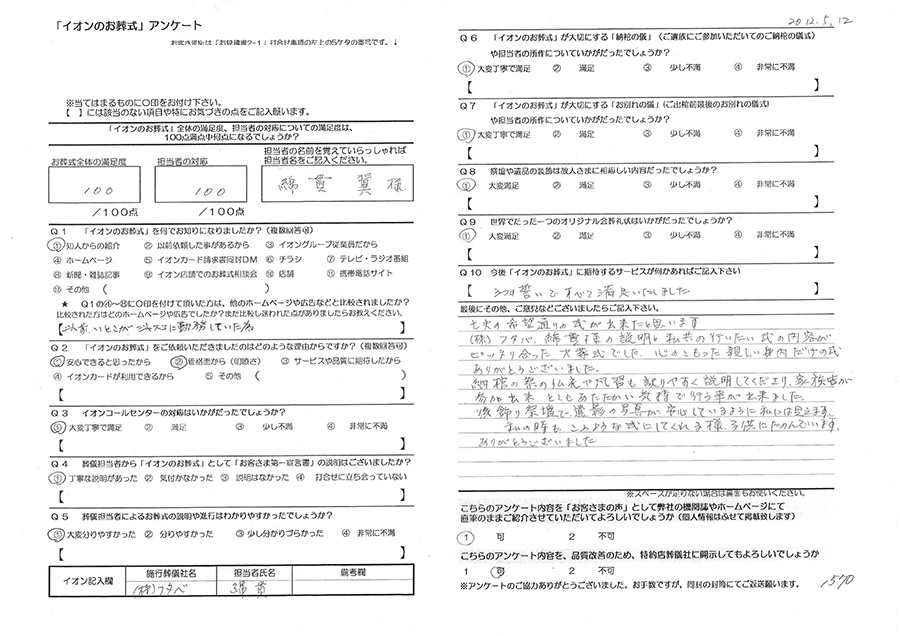 「イオンのお葬式」アンケート
お客さま番号は「お見積書2-1」打合せ事項の左上の5ケタの番号です。↓
※当てはまるものに○印をお付け下さい。
【 】には該当のない項目や特にお気づきの点をご記入願います。
「イオンのお葬式」全体の満足度、担当者の対応についての満足度は、
100点満点中何点になるでしょうか?
お葬式全体の満足度 担当者の対応 担当者の名前を覚えていらっしゃれば
担当者名をご記入ください。
100 100 綿貫 翼 様
/100点 /100点
Q1 「イオンのお葬式」を何でお知りになりましたか?(複数回答可)
① 知人からの紹介 ② 以前依頼した事があるから ③ イオングループ従業員だから
④ ホームページ ⑤ イオンカード請求書同封DM ⑥ チラシ ⑦ テレビ・ラジオ番組
⑧ 新聞・雑誌記事 ⑨ イオン店舗でのお葬式相談会 ⑩ 店舗 ⑪ 携帯電話サイト
⑫ その他 ( )
★ Q1の④~⑧に○印を付けて頂いた方は、他のホームページや広告などと比較されましたか?
比較された方はどのホームページや広告でしたか?また比較し迷われた点がありましたらお教えください。
【以前、いとこがジャスコに勤務していた為 】
Q2 「イオンのお葬式」をご依頼いただきましたのはどのような理由からですか?(複数回答可)
① 安心できると思ったから ② 価格面から(明瞭さ) ③ サービスや品質に期待したから
④ イオンカードが利用できるから ⑤ その他 ( )
【 】
Q3 イオンコールセンターの対応はいかがだったでしょうか?
① 大変丁寧で満足 ② 満足 ③ 少し不満 ④ 非常に不満
【 】
Q4 葬儀担当者から「イオンのお葬式」として「お客さま第一宣言書」の説明はございましたか?
① 丁寧な説明があった ② 気付かなかった ③ 説明はなかった ④ 打合せに立ち会っていない
【 】
Q5 葬儀担当者によるお葬式の説明や進行はわかりやすかったでしょうか?
① 大変分りやすかった ② 分りやすかった ③ 少し分りづらかった ④ 非常に不満
【 】
イオン記入欄 施行葬儀社名 担当者氏名 備考欄
(株)フタバ 綿貫
2012.5.12
Q6 「イオンのお葬式」が大切にする「納棺の儀」(ご遺族にご参加いただいてのご納棺の儀式)
や担当者の所作についていかがだったでしょうか?
① 大変丁寧で満足 ② 満足 ③ 少し不満 ④ 非常に不満
【 】
Q7 「イオンのお葬式」が大切にする「お別れの儀」(ご出棺前最後のお別れの儀式)
や担当者の所作についていかがだったでしょうか?
① 大変丁寧で満足 ② 満足 ③ 少し不満 ④ 非常に不満
【 】
Q8 祭壇や遺品の装飾は故人さまに相応しい内容だったでしょうか?
① 大変満足 ② 満足 ③ 少し不満 ④ 非常に不満
【 】
Q9 世界でたった一つのオリジナル会葬礼状はいかがだったでしょうか?
① 大変満足 ② 満足 ③ 少し不満 ④ 非常に不満
【 】
Q10 今後「イオンのお葬式」に期待するサービスが何かあればご記入下さい
【 3つの誓いですべて満足いたしました 】
最後にその他、ご意見などございましたらご記入下さい。
の希望通りの式が出来たと思います
(株)フタバ、綿貫様の説明と私共の行いたい式の内容が
ピッタリ合った 葬式でした。心のこもった親しい身内だけの式
ありがとうございました。
納棺の際の仏衣や風習も 説明してくださり、家族皆が
参加出来、とてもあたたかい気持で行う事が出来ました。
後飾り祭壇で、遺影の写真が安心しているように私には見えます。
私の時も、このような式にしてくれる様、子供にたのんでいます。
ありがとうございました
※スペースが足りない場合は裏面もお使いください。
こちらのアンケート内容を「お客さまの声」として弊社の機関誌やホームページにて
直筆のままご紹介させていただいてよろしいでしょうか(個人情報はふせて掲載致します)
1 可 2 不可
こちらのアンケート内容を、品質改善のため、特約店葬儀社に開示してもよろしいでしょうか
1 可 2 不可
※アンケートのご協力ありがとうございました。お手数ですが、同封の封筒にてご返送願います。
1570